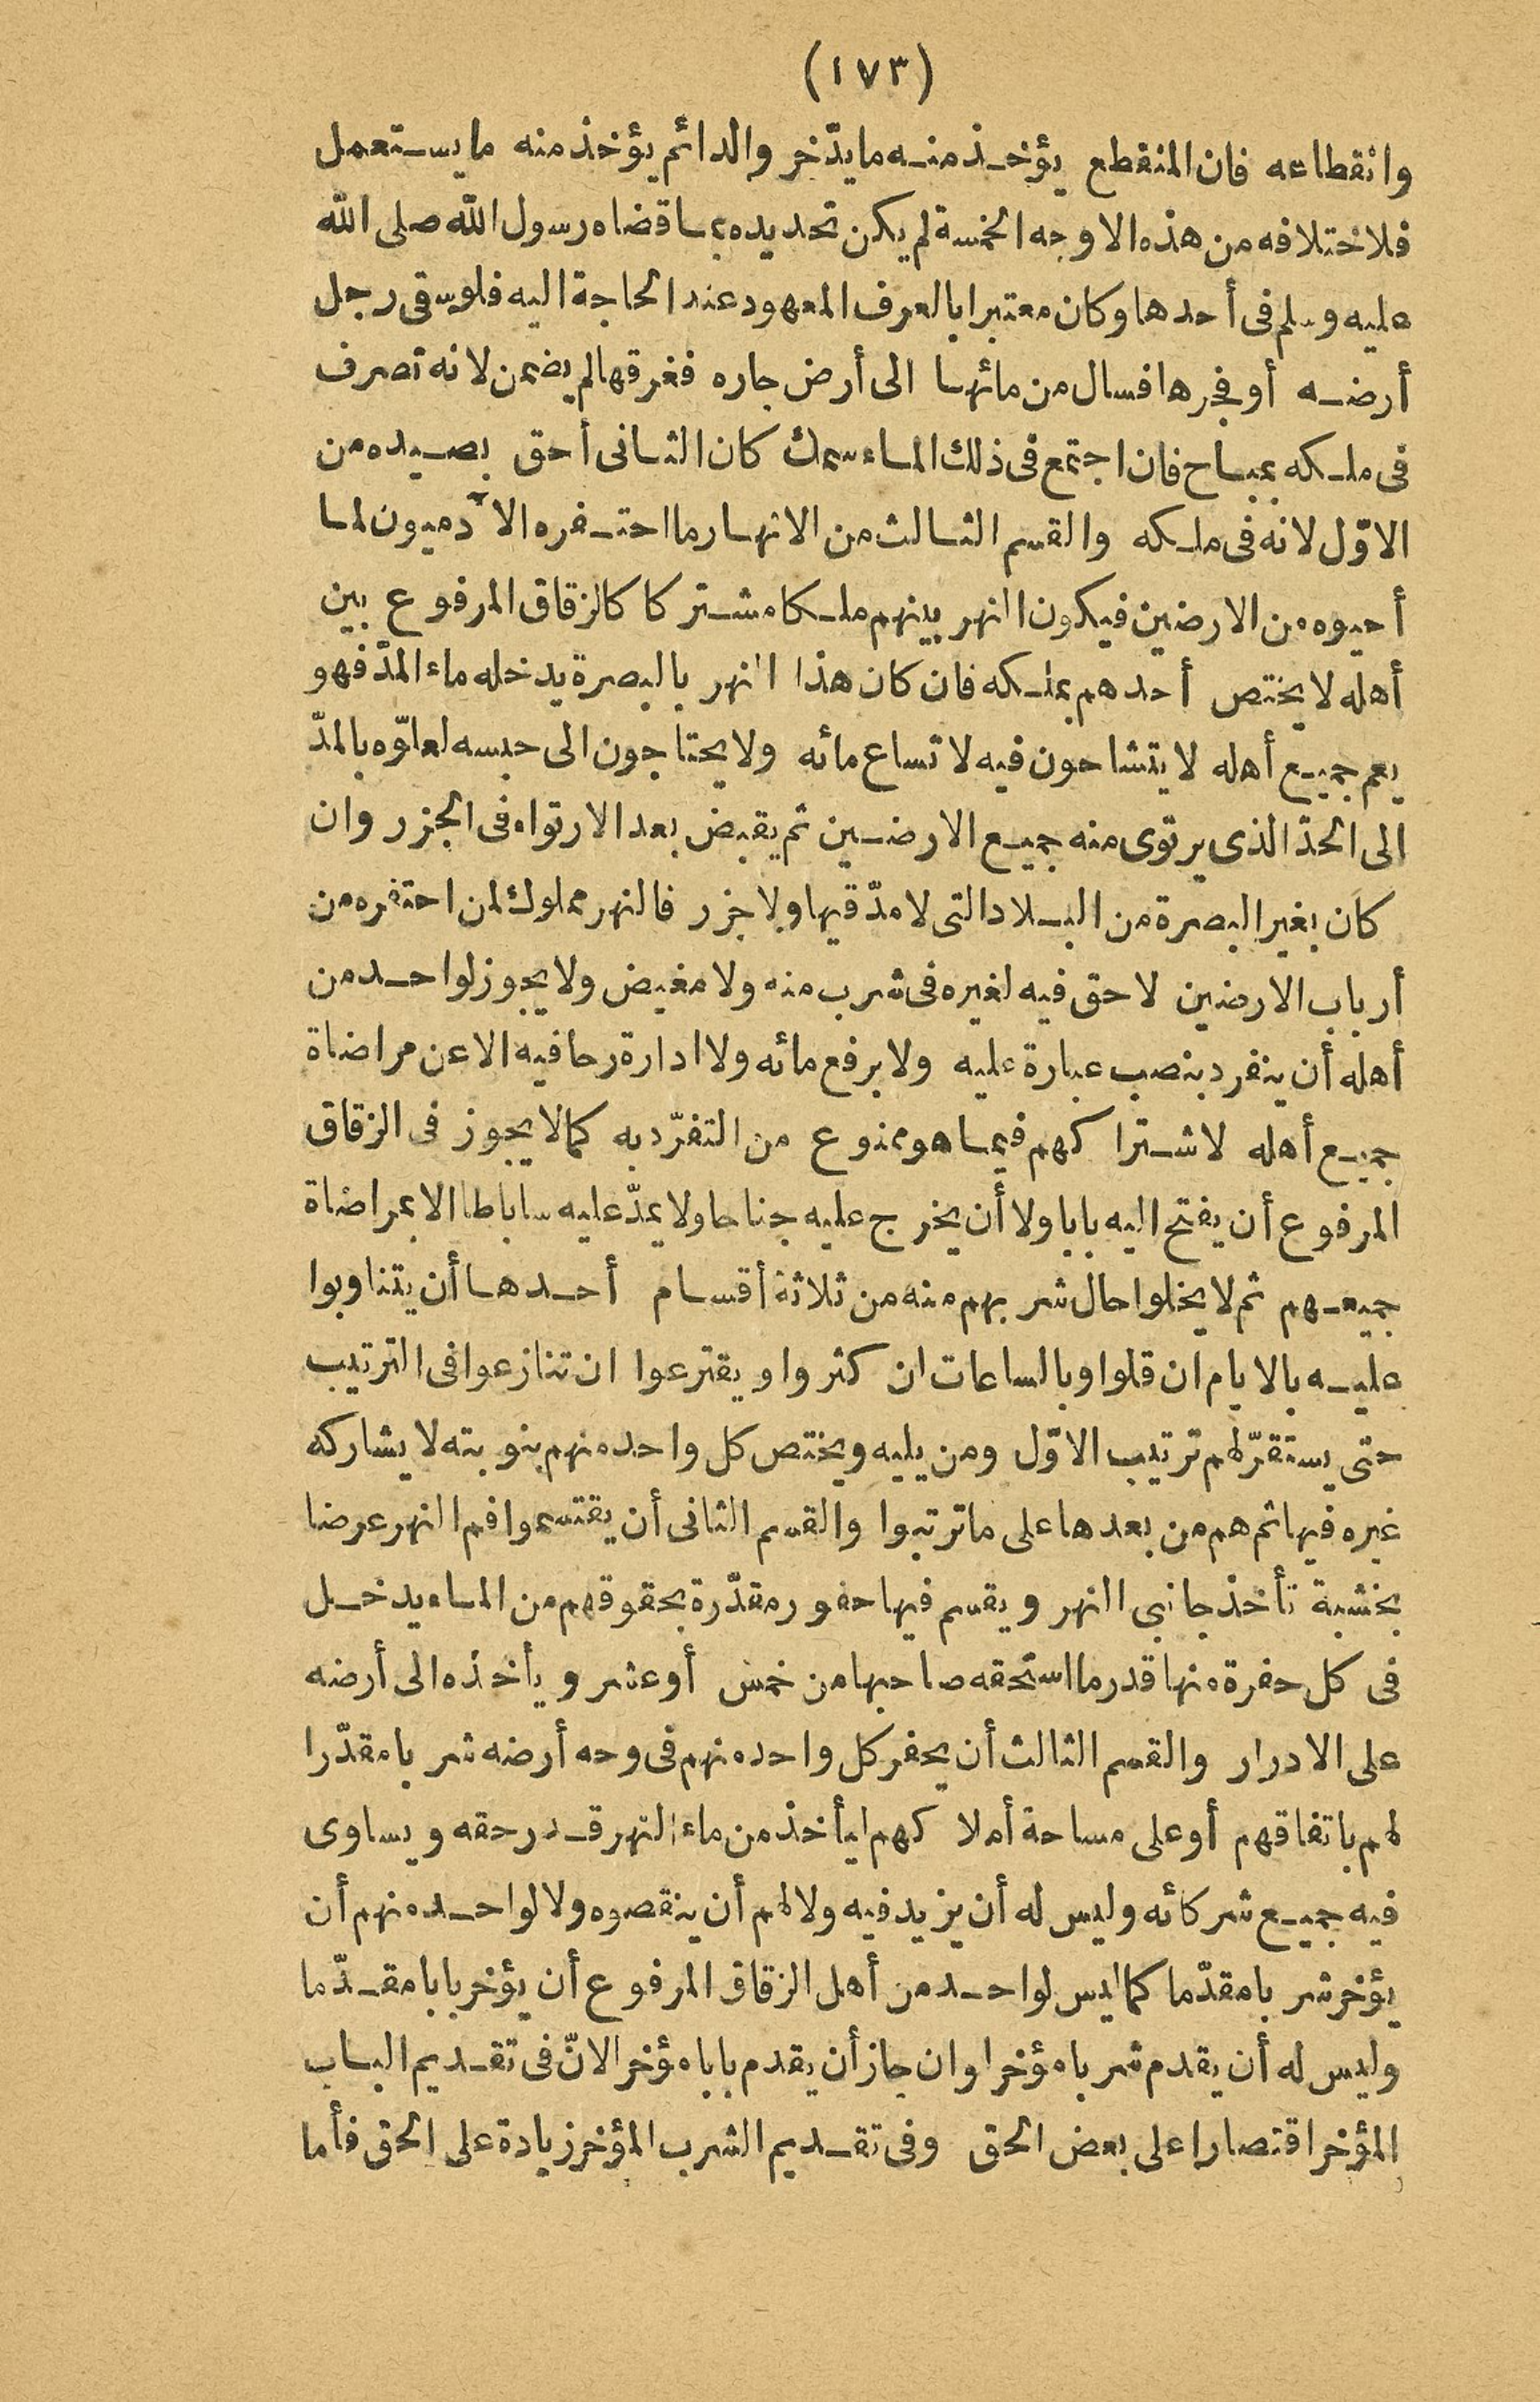 (١٧٣)
وانقطاعه فان المنقطع يؤخذ منه ما يدّخر والدائم يؤخذ منه ما يستعمل
فلاختلافه من هذه الاوجه الخمسة لم يكن تحديده بما قضاه رسول الله صلى الله
عليه وسلم فى أحدها وكان معتبرا بالعرف المعهود عند الحاجة اليه فلو سقى رجل
أرضه أو فجرها فسال من مائها الى أرض جاره فغرقها لم يضمن لانه تصرف
فى ملكه بمباح فان اجتمع فى ذلك الماء سمك كان الثانى أحق بصيده من
الاوّل لانه فى ملكه والقسم الثالث من الانهار ما احتفره الآدميون لما
أحيوه من الارضين فيكون النهر بينهم ملكا مشتركا كالزقاق المرفوع بين
أهله لا يختص أحدهم بملكه فان كان هذا النهر بالبصرة يدخله ماء المدّ فهو
يعم جميع أهله لا يتشاحون فيه لاتساع مائه ولا يحتاجون الى حبسه لعلوّه بالمدّ
الى الحدّ الذى يرتوى منه جميع الارضين ثم يقبض بعد الارتواء فى الجزر وان
كان بغير البصرة من البلاد التى لا مدّ فيها ولا جزر فالنهر مملوك لمن احتفره من
أرباب الارضين لا حق فيه لغيره فى شرب منه ولا مغيض ولا يجوز لواحد من
أهله أن ينفرد بنصب عبارة عليه ولا برفع مائه ولا ادارة رحا فيه الا عن مراضاة
جميع أهله لاشتراكهم فيما هو ممنوع من التفرّد به كما لا يجوز فى الزقاق
المرفوع أن يفتح اليه بابا ولا أن يخرج عليه جناحا ولا يمدّ عليه ساباطا الا بمراضاة
جميعهم ثم لا يخلوا حال شربهم منه من ثلاثة أقسام أحدها أن يتناوبوا
عليه بالايام ان قلوا وبالساعات ان كثروا ويقترعوا ان تنازعوا فى الترتيب
حتى يستقرّ لهم ترتيب الاوّل ومن يليه ويختص كل واحد منهم بنوبته لا يشاركه
غيره فيها ثم هم من بعدها على ما ترتبوا والقسم الثانى أن يقتسموا فم النهر عرضا
بخشبة تأخذ جانبى النهر ويقسم فيها حفور مقدّرة بحقوقهم من الماء يدخل
فى كل حفرة منها قدر ما استحقه صاحبها من خمس أو عشر ويأخذه الى أرضه
على الادرار والقسم الثالث أن يحفر كل واحد منهم فى وجه أرضه شربا مقدّرا
لهم باتفاقهم أو على مساحة أملاكهم ليأخذ من ماء النهر قدر حقه ويساوى
فيه جميع شركائه وليس له أن يزيد فيه ولا لهم أن ينقصوه ولا لواحد منهم أن
يؤخر شربا مقدّما كما ليس لواحد من أهل الزقاق المرفوع أن يؤخر بابا مقدّما
وليس له أن يقدم شربا مؤخرا وان جاز أن يقدم بابا مؤخرا لانّ فى تقديم الباب
المؤخر اقتصارا على بعض الحق وفى تقديم الشرب المؤخر زيادة على الحق فأما